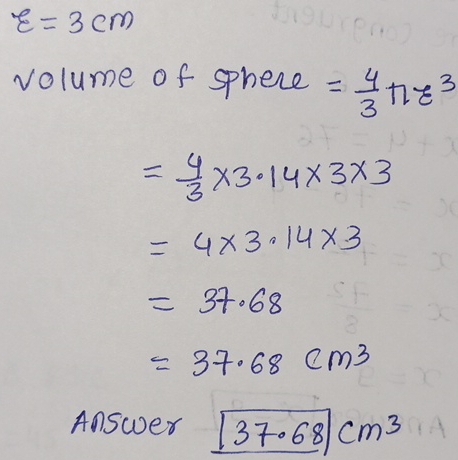 r = 3 cm
volume of sphere = 4/3 πr³
= 4/3 ×3.14×3×3
= 4×3.14×3
= 37.68
= 37.68 cm³
Answer 37.68 cm³